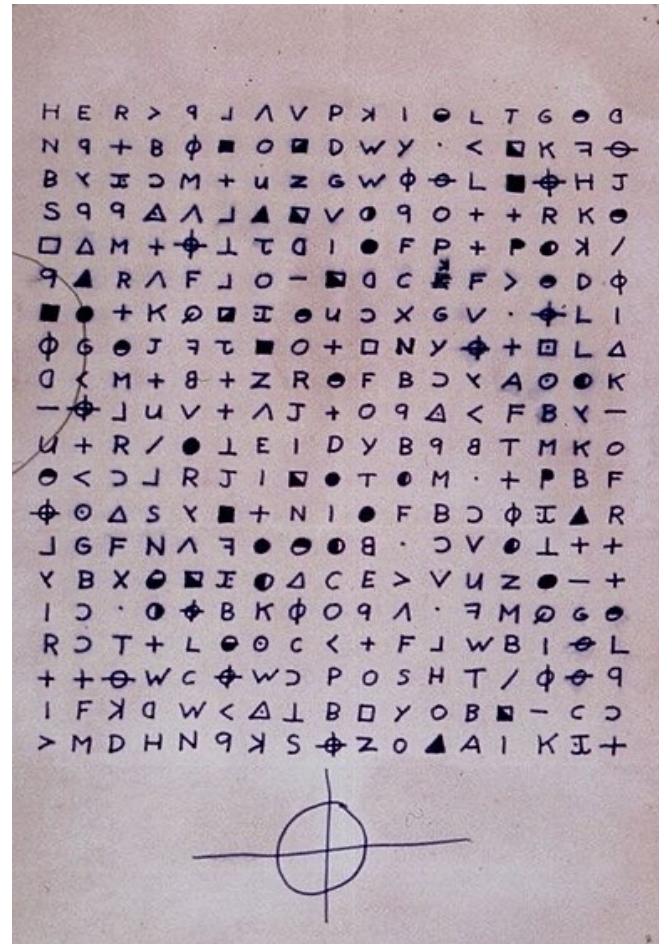 H E R > ꟼ ⅃ Λ V P ꓘ I ◒ L T G ◒ ᗡ
N ꟼ + B ϕ ■ O ◪ D W Y · < ◩ K ꟻ ⊖
B Y 工 Ɔ M + U Z G W ϕ ⊖ L ■ ⌖ H J
S ꟼ ꟼ ◬ Λ ⅃ ▲ ◩ V ◑ ꟼ O + + R K ◒
□ △ M + ⌖ ⊥ τ ᗡ I ● F P + P ◐ ꓘ /
ꟼ ▲ R Λ F ⅃ O – ◩ ᗡ C F > ◒ D ϕ
■ ● + K ∅ ◪ 工 ◒ U Ɔ X G V · ⌖ L I
ϕ G ◒ J ꟻ τ ■ O + □ N Y ⌖ + ⊡ L △
ᗡ < M + 8 + Z R ◒ F B Ɔ Y A ⊙ ◐ K
– ⌖ ⅃ U V + Λ J + O ꟼ ◬ < F B Y –
U + R / ● ⊥ E I D Y B ꟼ 8 T M K O
◒ < Ɔ ⅃ R J I ◩ ● T ◐ M · + P B F
⌖ ⊙ △ S Y ■ + N I ● F B Ɔ ϕ 工 ▲ R
⅃ G F N Λ ꟻ ● ◒ ◐ 8 · Ɔ V ◐ ⊥ + +
Y B X ◒ ◩ 工 ◐ △ C E > V U Z ● – +
I Ɔ · ◑ ⌖ B K ϕ O ꟼ Λ · ꟻ M ∅ G ◒
R Ɔ T + L ◒ ⊙ C < + F ⅃ W B I ⊖ L
+ + ⊖ W C ⌖ W Ɔ P O S H T / ϕ ⊖ ꟼ
I F ꓘ ᗡ W < △ ⊥ B □ Y O B ◩ – C Ɔ
> M D H N ꟼ ꓘ S ⌖ Z O ▲ A I K 工 +